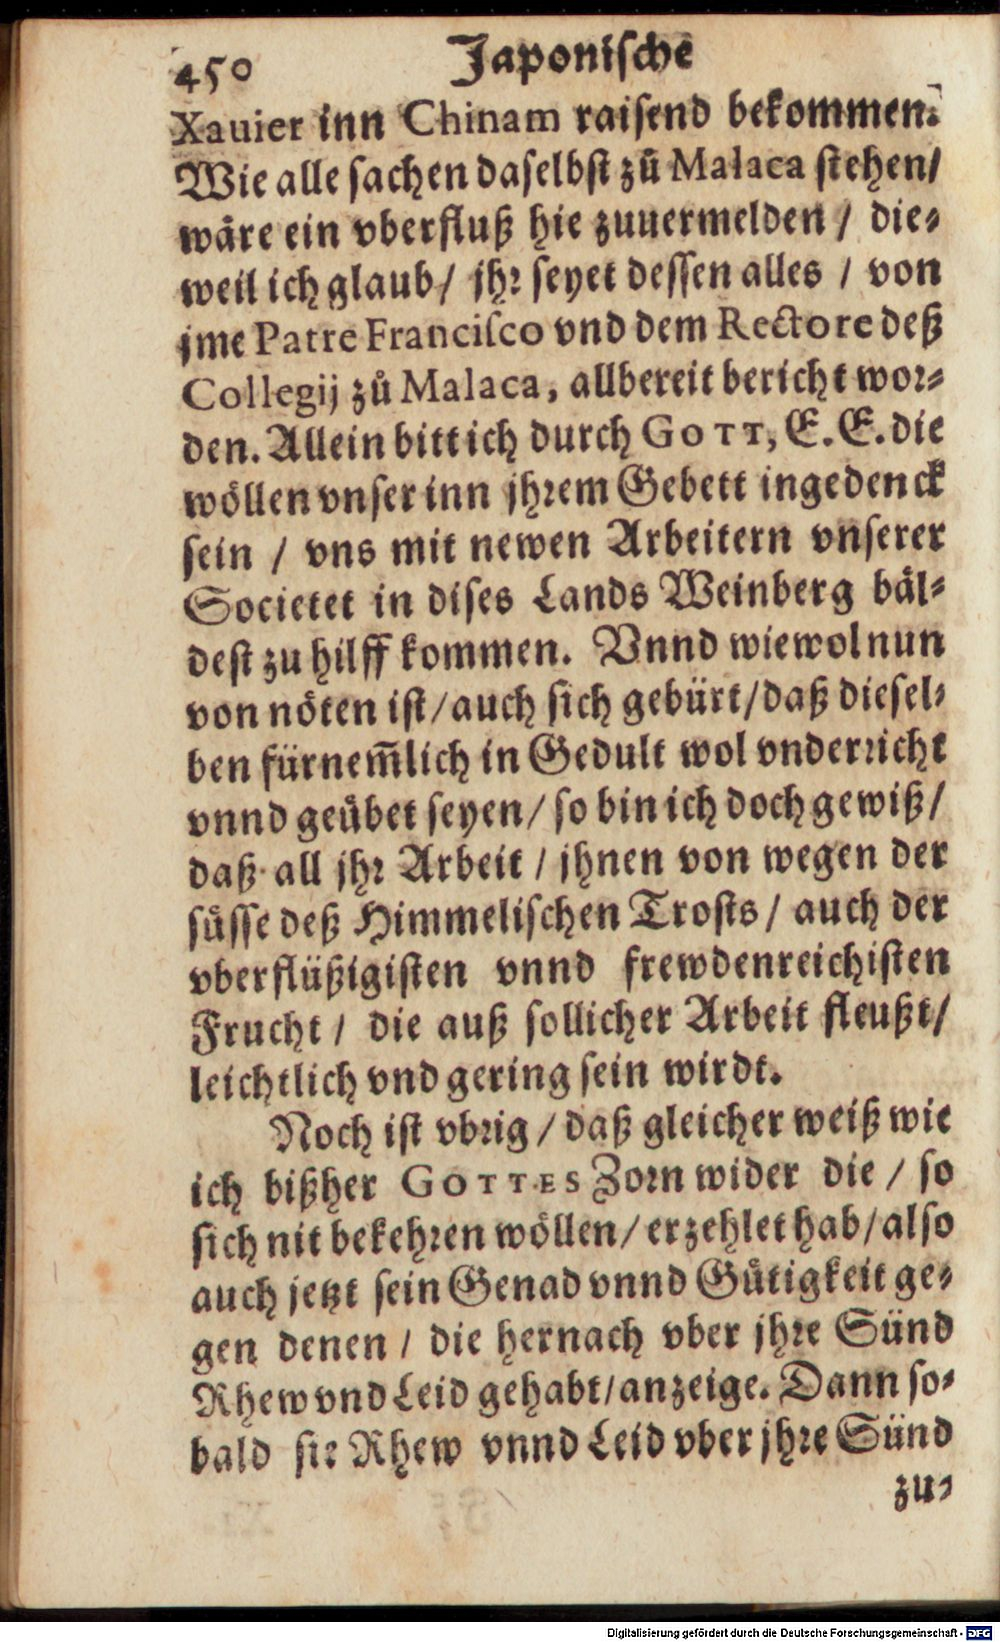 450 Japonische
Xauier inn Chinam raisend bekommen.
Wie alle sachen daselbst zů Malaca stehen/
wäre ein vberfluß hie zuuermelden / die-
weil ich glaub/ jhr seyet dessen alles / von
jme Patre Francisco vnd dem Rectore deß
Collegij zů Malaca, allbereit bericht wor-
den. Allein bitt ich durch GOTT, E. E. die
wöllen vnser inn jhrem Gebett ingedenck
sein / vns mit newen Arbeitern vnserer
Societet in dises Lands Weinberg bäl-
dest zu hilff kommen. Vnnd wiewol nun
von nöten ist/auch sich gebürt/daß diesel-
ben fürnem̃lich in Gedult wol vnderricht
vnnd geübet seyen/ so bin ich doch gewiß/
daß all jhr Arbeit / jhnen von wegen der
süsse deß Himmelischen Trosts/ auch der
vberflüßigisten vnnd frewdenreichisten
Frucht/ die auß sollicher Arbeit fleußt/
leichtlich vnd gering sein wirdt.
Noch ist vbrig / daß gleicher weiß wie
ich bißher GOTTES Zorn wider die / so
sich nit bekehren wöllen/ erzehlet hab/also
auch jetzt sein Genad vnnd Gütigkeit ge-
gen denen / die hernach vber jhre Sünd
Rhew vnd Leid gehabt/anzeige. Dann so-
bald sie Rhew vnnd Leid vber jhre Sünd
zu-
Digitalisierung gefördert durch die Deutsche Forschungsgemeinschaft - DFG